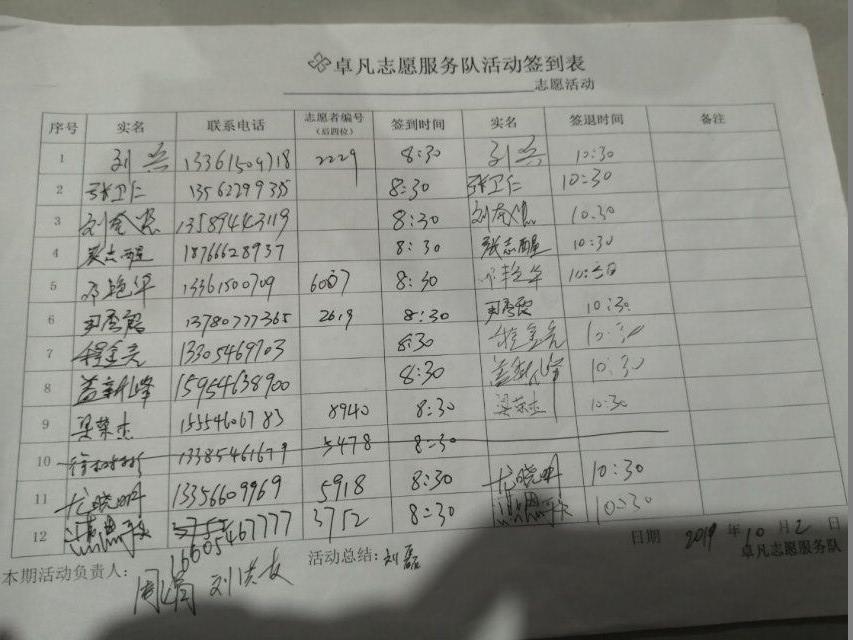 卓凡志愿服务队活动签到表
志愿活动
序号 实名 联系电话 志愿者编号（后四位） 签到时间 实名 签退时间 备注
1 刘兵 13361504718 2229 8:30 刘兵 10:30
2 张卫仁 1356229935 8:30 张卫仁 10:30
3 13589443119 8:30 10:30
4 18766628937 8:30 张志醒 10:30
5 邓艳华 13361500709 6007 8:30 10:30
6 13780777365 2619 8:30 10:30
7 程金亮 13305469703 8:30 程金亮 10:30
8 盖新峰 15954638900 8:30 盖新峰 10:30
9 梁荣杰 15554606783 8940 8:30 梁荣杰 10:30
10 13385461679 5478 8:30
11 尤晓明 13356609969 5918 8:30 尤晓明 10:30
12 16605467777 3752 8:30 10:30
日期 2019年10月2日
本期活动负责人： 周娟 活动总结：刘磊 卓凡志愿服务队